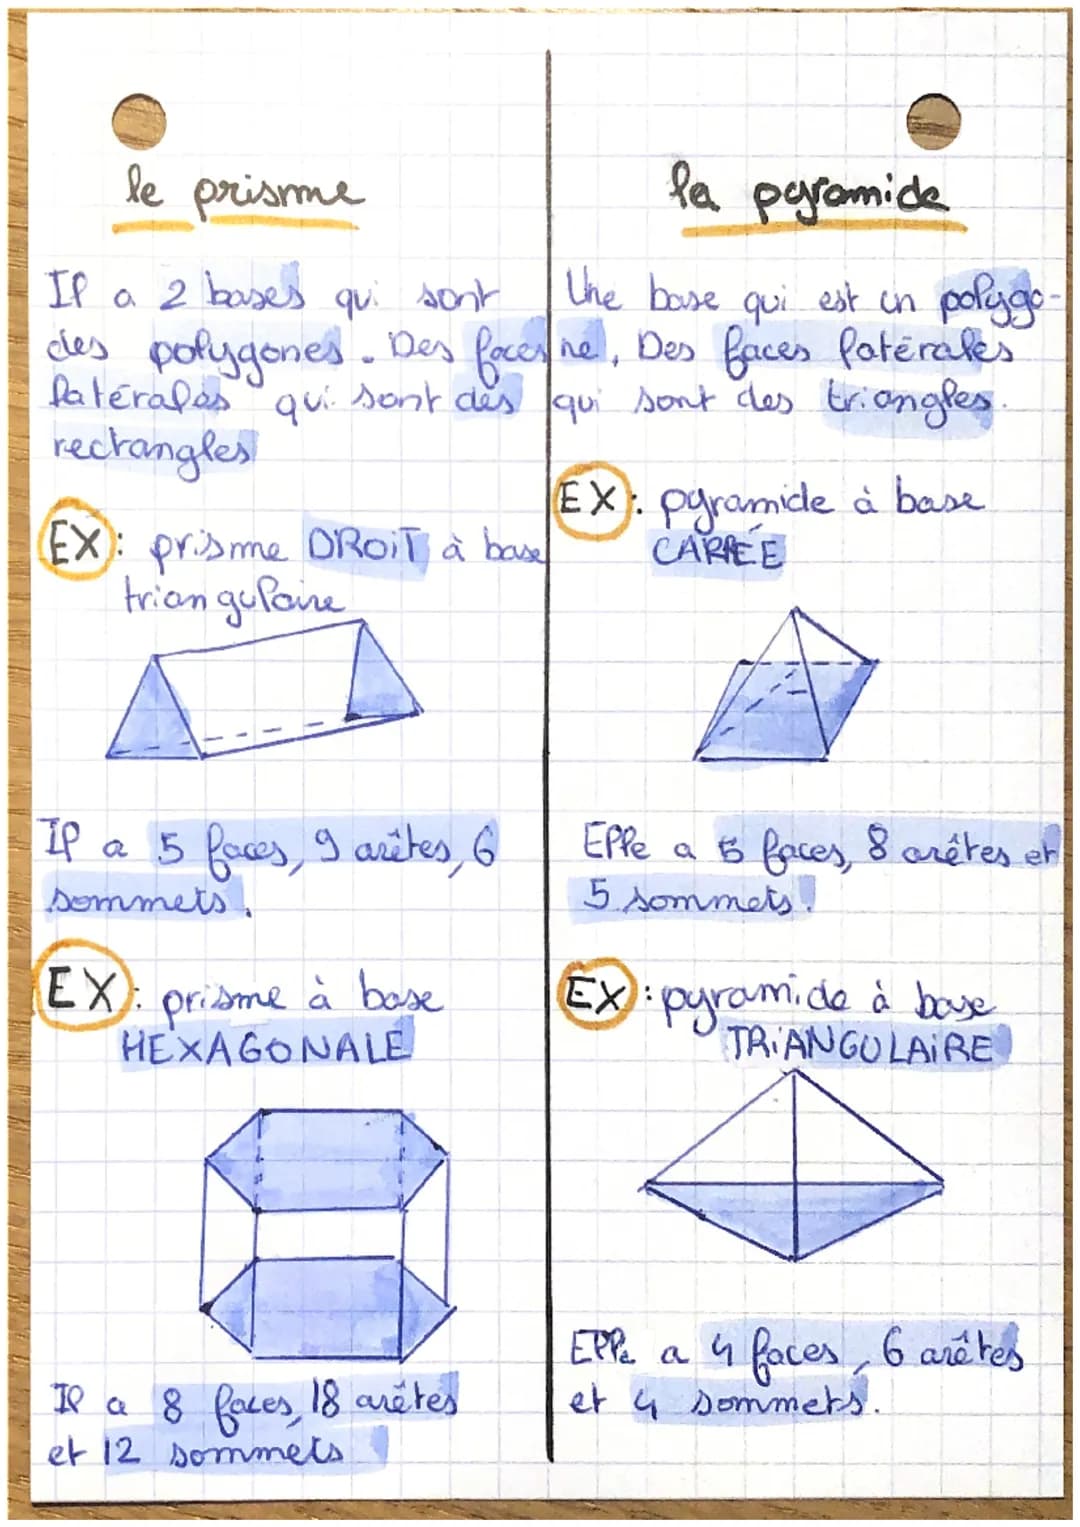 le prisme
Il a 2 bases qui sont
des polygones. Des faces
latérales qui sont des
rectangles
EX: prisme DROIT à base
triangulaire
Il a 5 faces, 9 arêtes, 6
sommets.
EX: prisme à base
HEXAGONALE
Il a 8 faces, 18 arêtes
et 12 sommets
la pyramide
Une base qui est un polygo-
ne, Des faces latérales
qui sont des triangles.
EX: pyramide à base
CARRÉE
Elle a 5 faces, 8 arêtes et
5 sommets.
EX: pyramide à base
TRIANGULAIRE
Elle a 4 faces, 6 arêtes
et 4 sommets.